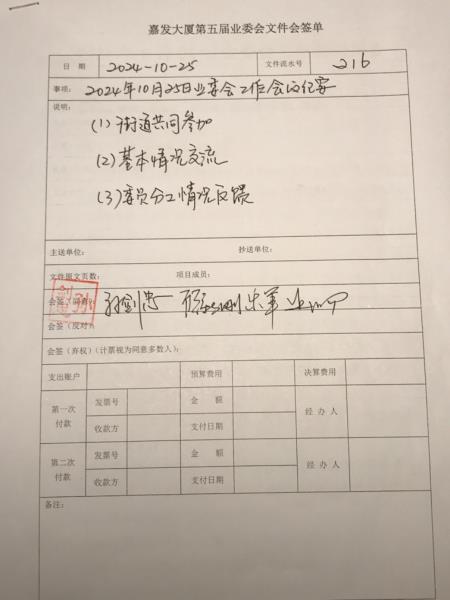 嘉发大厦第五届业委会文件会签单
日 期 2024-10-25 文件流水号 216
事项: 2024年10月25日业委会工作会议纪要
说明:
(1)街道共同参加
(2)基本情况交流
(3)委员分工情况反馈
主送单位: 抄送单位:
文件原文页数: 项目成员:
会签(同意):
会签(反对):
会签(弃权)(计票视为同意多数人):
支出账户 预算费用 决算费用
第一次付款 发票号 金 额 经 办 人
收款方 支付日期
第二次付款 发票号 金 额 经 办 人
收款方 支付日期
备注: